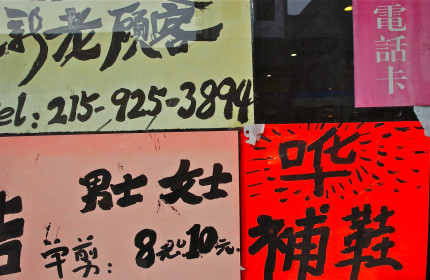 老顾客
el: 215-925-3894
電話卡
男士 女士
单剪: 8元 10元
哗
補鞋